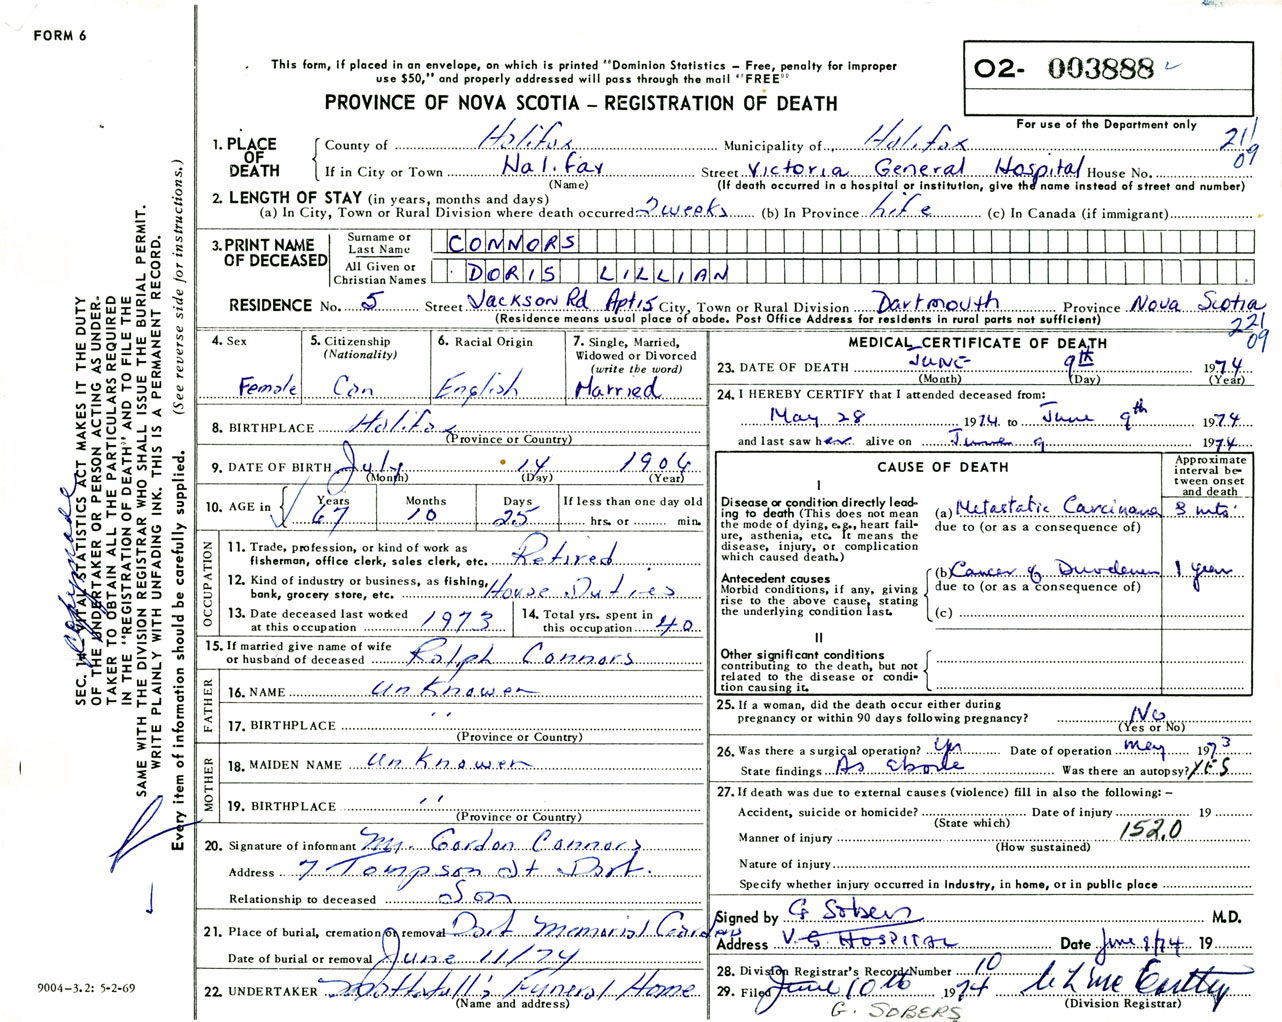 FORM 6
This form, if placed in an envelope, on which is printed "Dominion Statistics – Free, penalty for improper
use $50," and properly addressed will pass through the mail "FREE"
PROVINCE OF NOVA SCOTIA – REGISTRATION OF DEATH
02- 003888
For use of the Department only
21/09
1. PLACE OF DEATH
County of Halifax Municipality of Halifax
If in City or Town Halifax Street Victoria General Hospital House No.
(Name) (If death occurred in a hospital or institution, give the name instead of street and number)
2. LENGTH OF STAY (in years, months and days)
(a) In City, Town or Rural Division where death occurred 2 weeks (b) In Province Life (c) In Canada (if immigrant)
3. PRINT NAME OF DECEASED
Surname or Last Name CONNORS
All Given or Christian Names DORIS LILLIAN
RESIDENCE No. 5 Street Jackson Rd Apt 15 City, Town or Rural Division Dartmouth Province Nova Scotia
(Residence means usual place of abode. Post Office Address for residents in rural parts not sufficient)
221
09
4. Sex Female
5. Citizenship (Nationality) Can
6. Racial Origin English
7. Single, Married, Widowed or Divorced (write the word) Married
8. BIRTHPLACE Halifax
(Province or Country)
9. DATE OF BIRTH July 14 1906
(Month) (Day) (Year)
10. AGE in Years 67 Months 10 Days 25 If less than one day old hrs. or min.
OCCUPATION
11. Trade, profession, or kind of work as fisherman, office clerk, sales clerk, etc. Retired
12. Kind of industry or business, as fishing, bank, grocery store, etc. House Duties
13. Date deceased last worked at this occupation 1973
14. Total yrs. spent in this occupation 40
15. If married give name of wife or husband of deceased Ralph Connors
FATHER
16. NAME UnKnowen
17. BIRTHPLACE ''
(Province or Country)
MOTHER
18. MAIDEN NAME UnKnowen
19. BIRTHPLACE ''
(Province or Country)
20. Signature of informant Mr. Gordon Connors
Address 7 Tompson St Dart.
Relationship to deceased Son
21. Place of burial, cremation or removal Dart Memorial Gardens
Date of burial or removal June 11/74
22. UNDERTAKER Funeral Home
(Name and address)
MEDICAL CERTIFICATE OF DEATH
23. DATE OF DEATH JUNE 9th 1974
(Month) (Day) (Year)
24. I HEREBY CERTIFY that I attended deceased from:
May 28 1974 to June 9th 1974
and last saw her alive on June 9 1974
CAUSE OF DEATH
Approximate interval between onset and death
I
Disease or condition directly leading to death (This does not mean the mode of dying, e.g., heart failure, asthenia, etc. It means the disease, injury, or complication which caused death.)
(a) Metastatic Carcinoma 3 mts.
due to (or as a consequence of)
Antecedent causes
Morbid conditions, if any, giving rise to the above cause, stating the underlying condition last.
(b) Cancer of Duodenum 1 year
due to (or as a consequence of)
(c)
II
Other significant conditions
contributing to the death, but not related to the disease or condition causing it.
25. If a woman, did the death occur either during pregnancy or within 90 days following pregnancy? No
(Yes or No)
26. Was there a surgical operation? Yes Date of operation May 1973
State findings As above Was there an autopsy? YES
27. If death was due to external causes (violence) fill in also the following: –
Accident, suicide or homicide? Date of injury 19
(State which)
Manner of injury 152.0
(How sustained)
Nature of injury
Specify whether injury occurred in Industry, in home, or in public place
Signed by G Sobers M.D.
Address V.G. HOSPITAL Date June 9/74 19
28. Division Registrar's Record Number 10
29. Filed June 10th 1974
(Division Registrar)
G. SOBERS
SEC. VITAL STATISTICS ACT MAKES IT THE DUTY
OF THE UNDERTAKER OR PERSON ACTING AS UNDER-
TAKER TO OBTAIN ALL THE PARTICULARS REQUIRED
IN THE "REGISTRATION OF DEATH" AND TO FILE THE
SAME WITH THE DIVISION REGISTRAR WHO SHALL ISSUE THE BURIAL PERMIT.
WRITE PLAINLY WITH UNFADING INK. THIS IS A PERMANENT RECORD.
Every item of information should be carefully supplied. (See reverse side for instructions.)
9004-3.2: 5-2-69